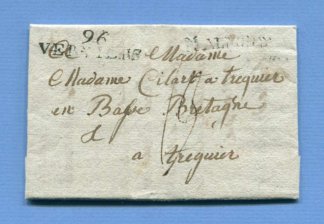 96
Madame
Madame Cilart a treguier
en Basse Bretagne
a treguier